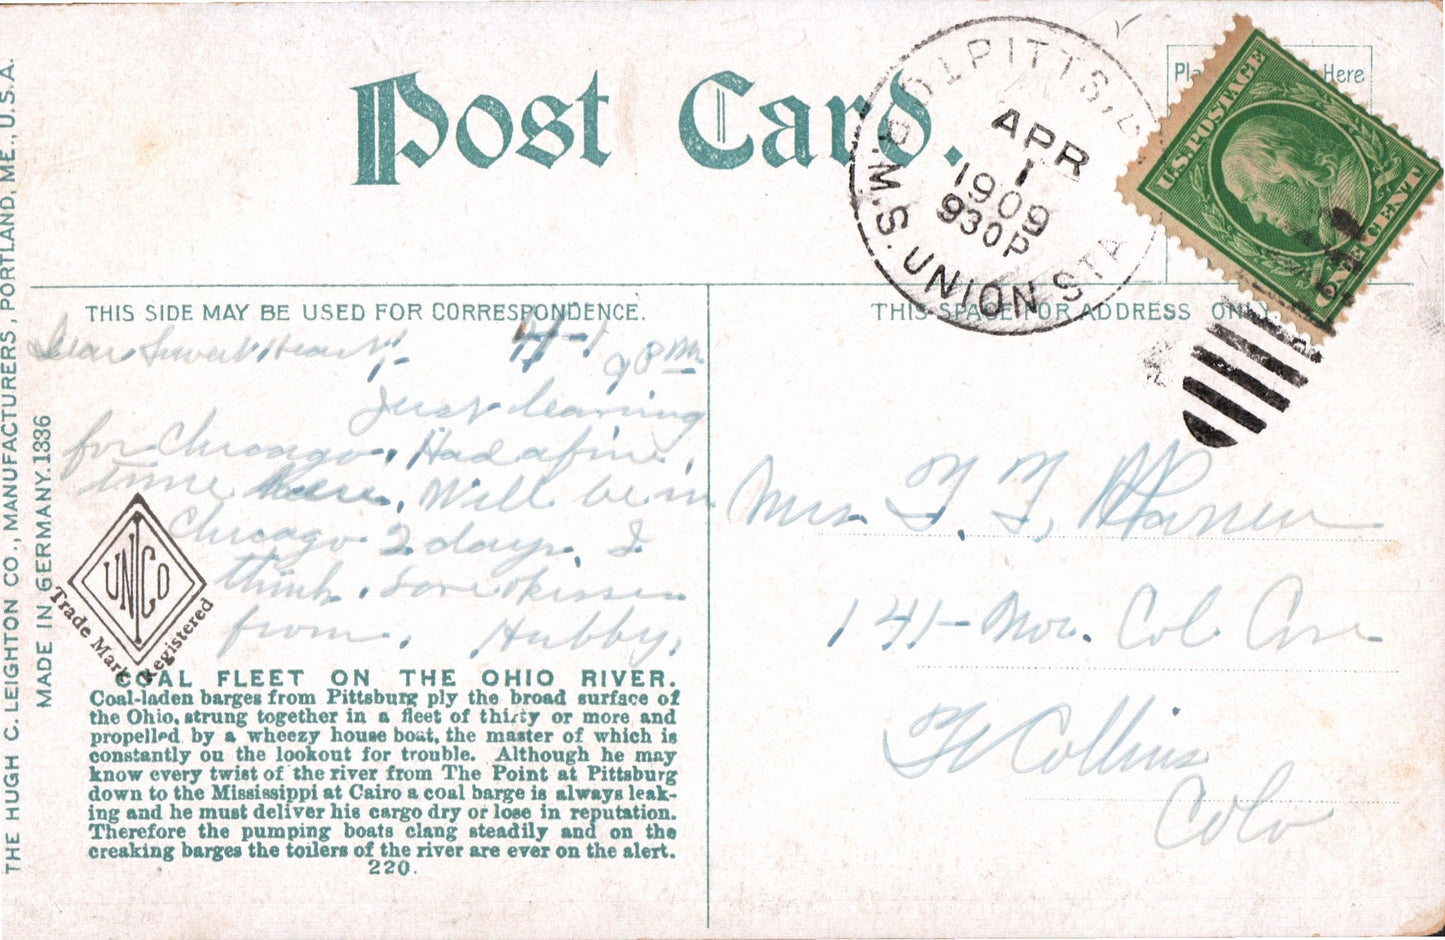 Post Card.
PITTS,
R.M.S. UNION STA
APR
1
1909
930P
Here
U.S. POSTAGE
ONE CENT
THIS SIDE MAY BE USED FOR CORRESPONDENCE.
THIS SPACE FOR ADDRESS ONLY.
Dear Sweet Heart, 4/-1
9 PM
Just leaving
for Chicago. Had a fine
time here. Will be in
Chicago 2 days. I
think. Love & kisses
from. Hubby.
Mrs. F. F.
141- Nor. Col Ave
Ft Collins
Colo
UNCO
Trade Mark Registered
COAL FLEET ON THE OHIO RIVER.
Coal-laden barges from Pittsburg ply the broad surface of
the Ohio, strung together in a fleet of thirty or more and
propelled by a wheezy house boat, the master of which is
constantly on the lookout for trouble. Although he may
know every twist of the river from The Point at Pittsburg
down to the Mississippi at Cairo a coal barge is always leak-
ing and he must deliver his cargo dry or lose in reputation.
Therefore the pumping boats clang steadily and on the
creaking barges the toilers of the river are ever on the alert.
220.
THE HUGH C. LEIGHTON CO., MANUFACTURERS, PORTLAND, ME., U.S.A.
MADE IN GERMANY. 1336